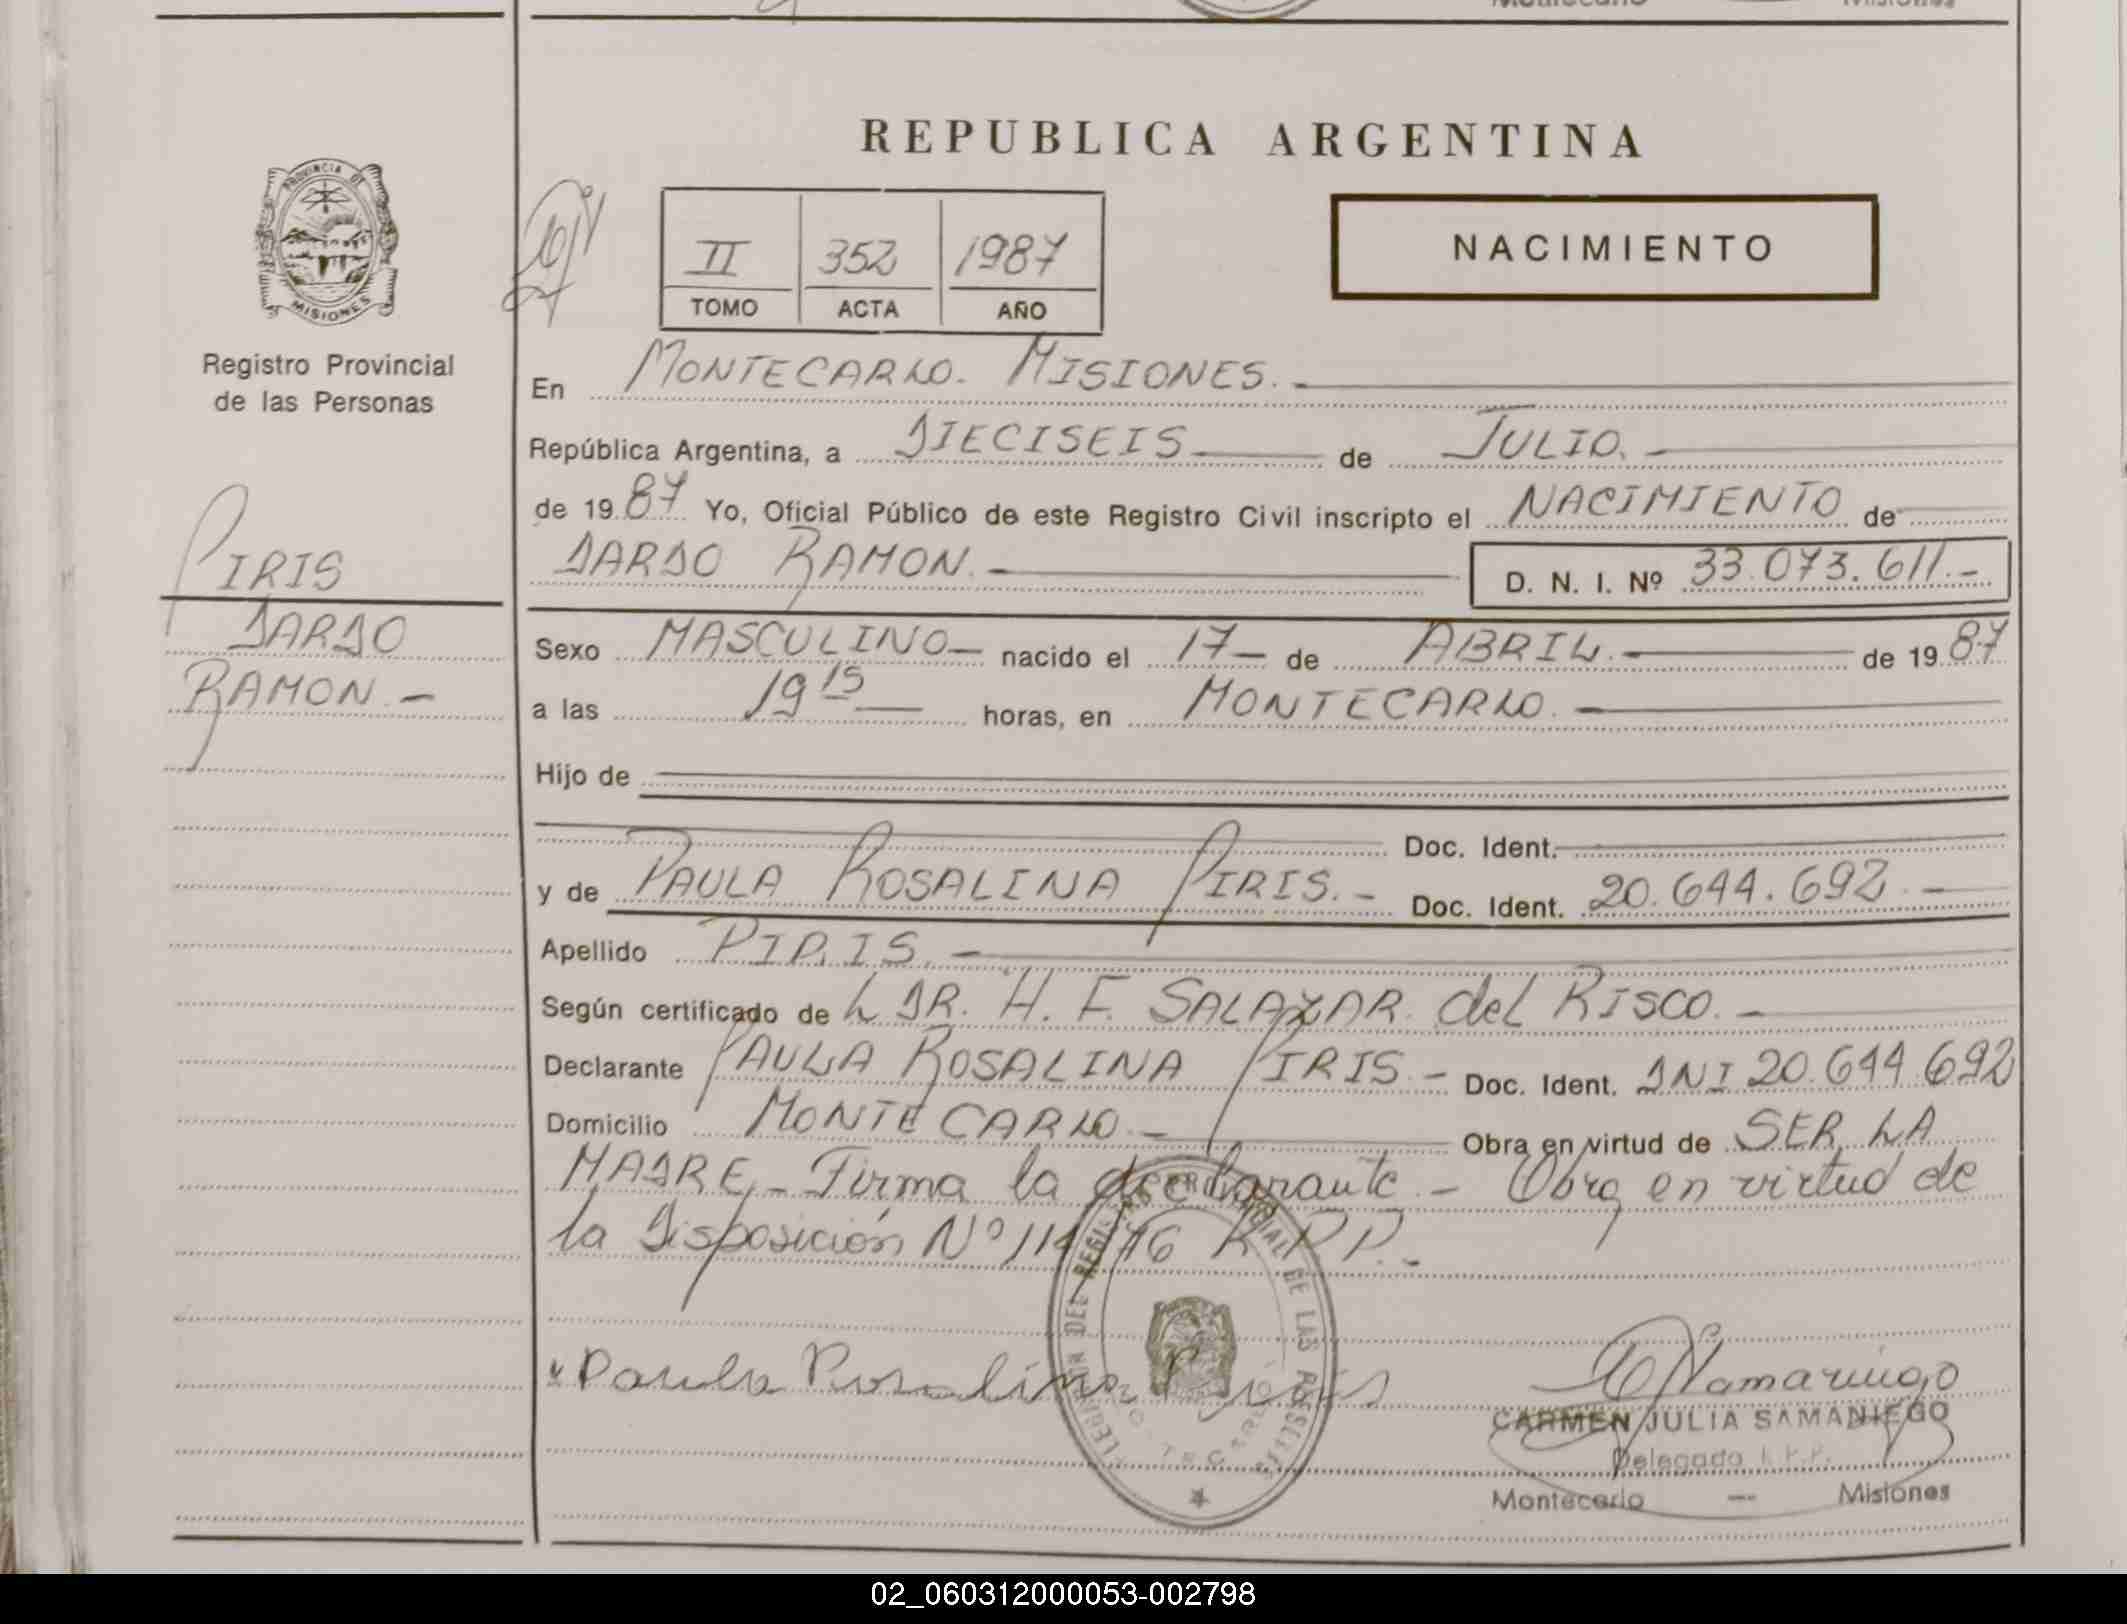 REPUBLICA ARGENTINA
PROVINCIA DE
MISIONES
Registro Provincial
de las Personas
II 352 1987
TOMO ACTA AÑO
NACIMIENTO
En MONTECARLO. MISIONES.-
República Argentina, a DIECISEIS de JULIO.-
de 1987 Yo, Oficial Público de este Registro Civil inscripto el NACIMIENTO de
DARDO RAMON.- D. N. I. Nº 33.073.611.-
PIRIS
DARDO
RAMON.-
Sexo MASCULINO- nacido el 17- de ABRIL.- de 1987
a las 19 15 horas, en MONTECARLO.-
Hijo de
Doc. Ident.
y de PAULA ROSALINA PIRIS.- Doc. Ident. 20.644.692.-
Apellido PIRIS.-
Según certificado de L DR. H. F. SALAZAR del RISCO.-
Declarante PAULA ROSALINA PIRIS.- Doc. Ident. DNI 20.644.692
Domicilio MONTECARLO.- Obra en virtud de SER LA
MADRE.- Firma la declarante.- Obra en virtud de
la Disposición Nº 114/76 R.P.P.-
DEL REGISTRO PROVINCIAL DE LAS PERSONAS
Paula Rosalina Piris
CARMEN JULIA SAMANIEGO
Delegado R.P.P.
Montecarlo — Misiones
02_060312000053-002798